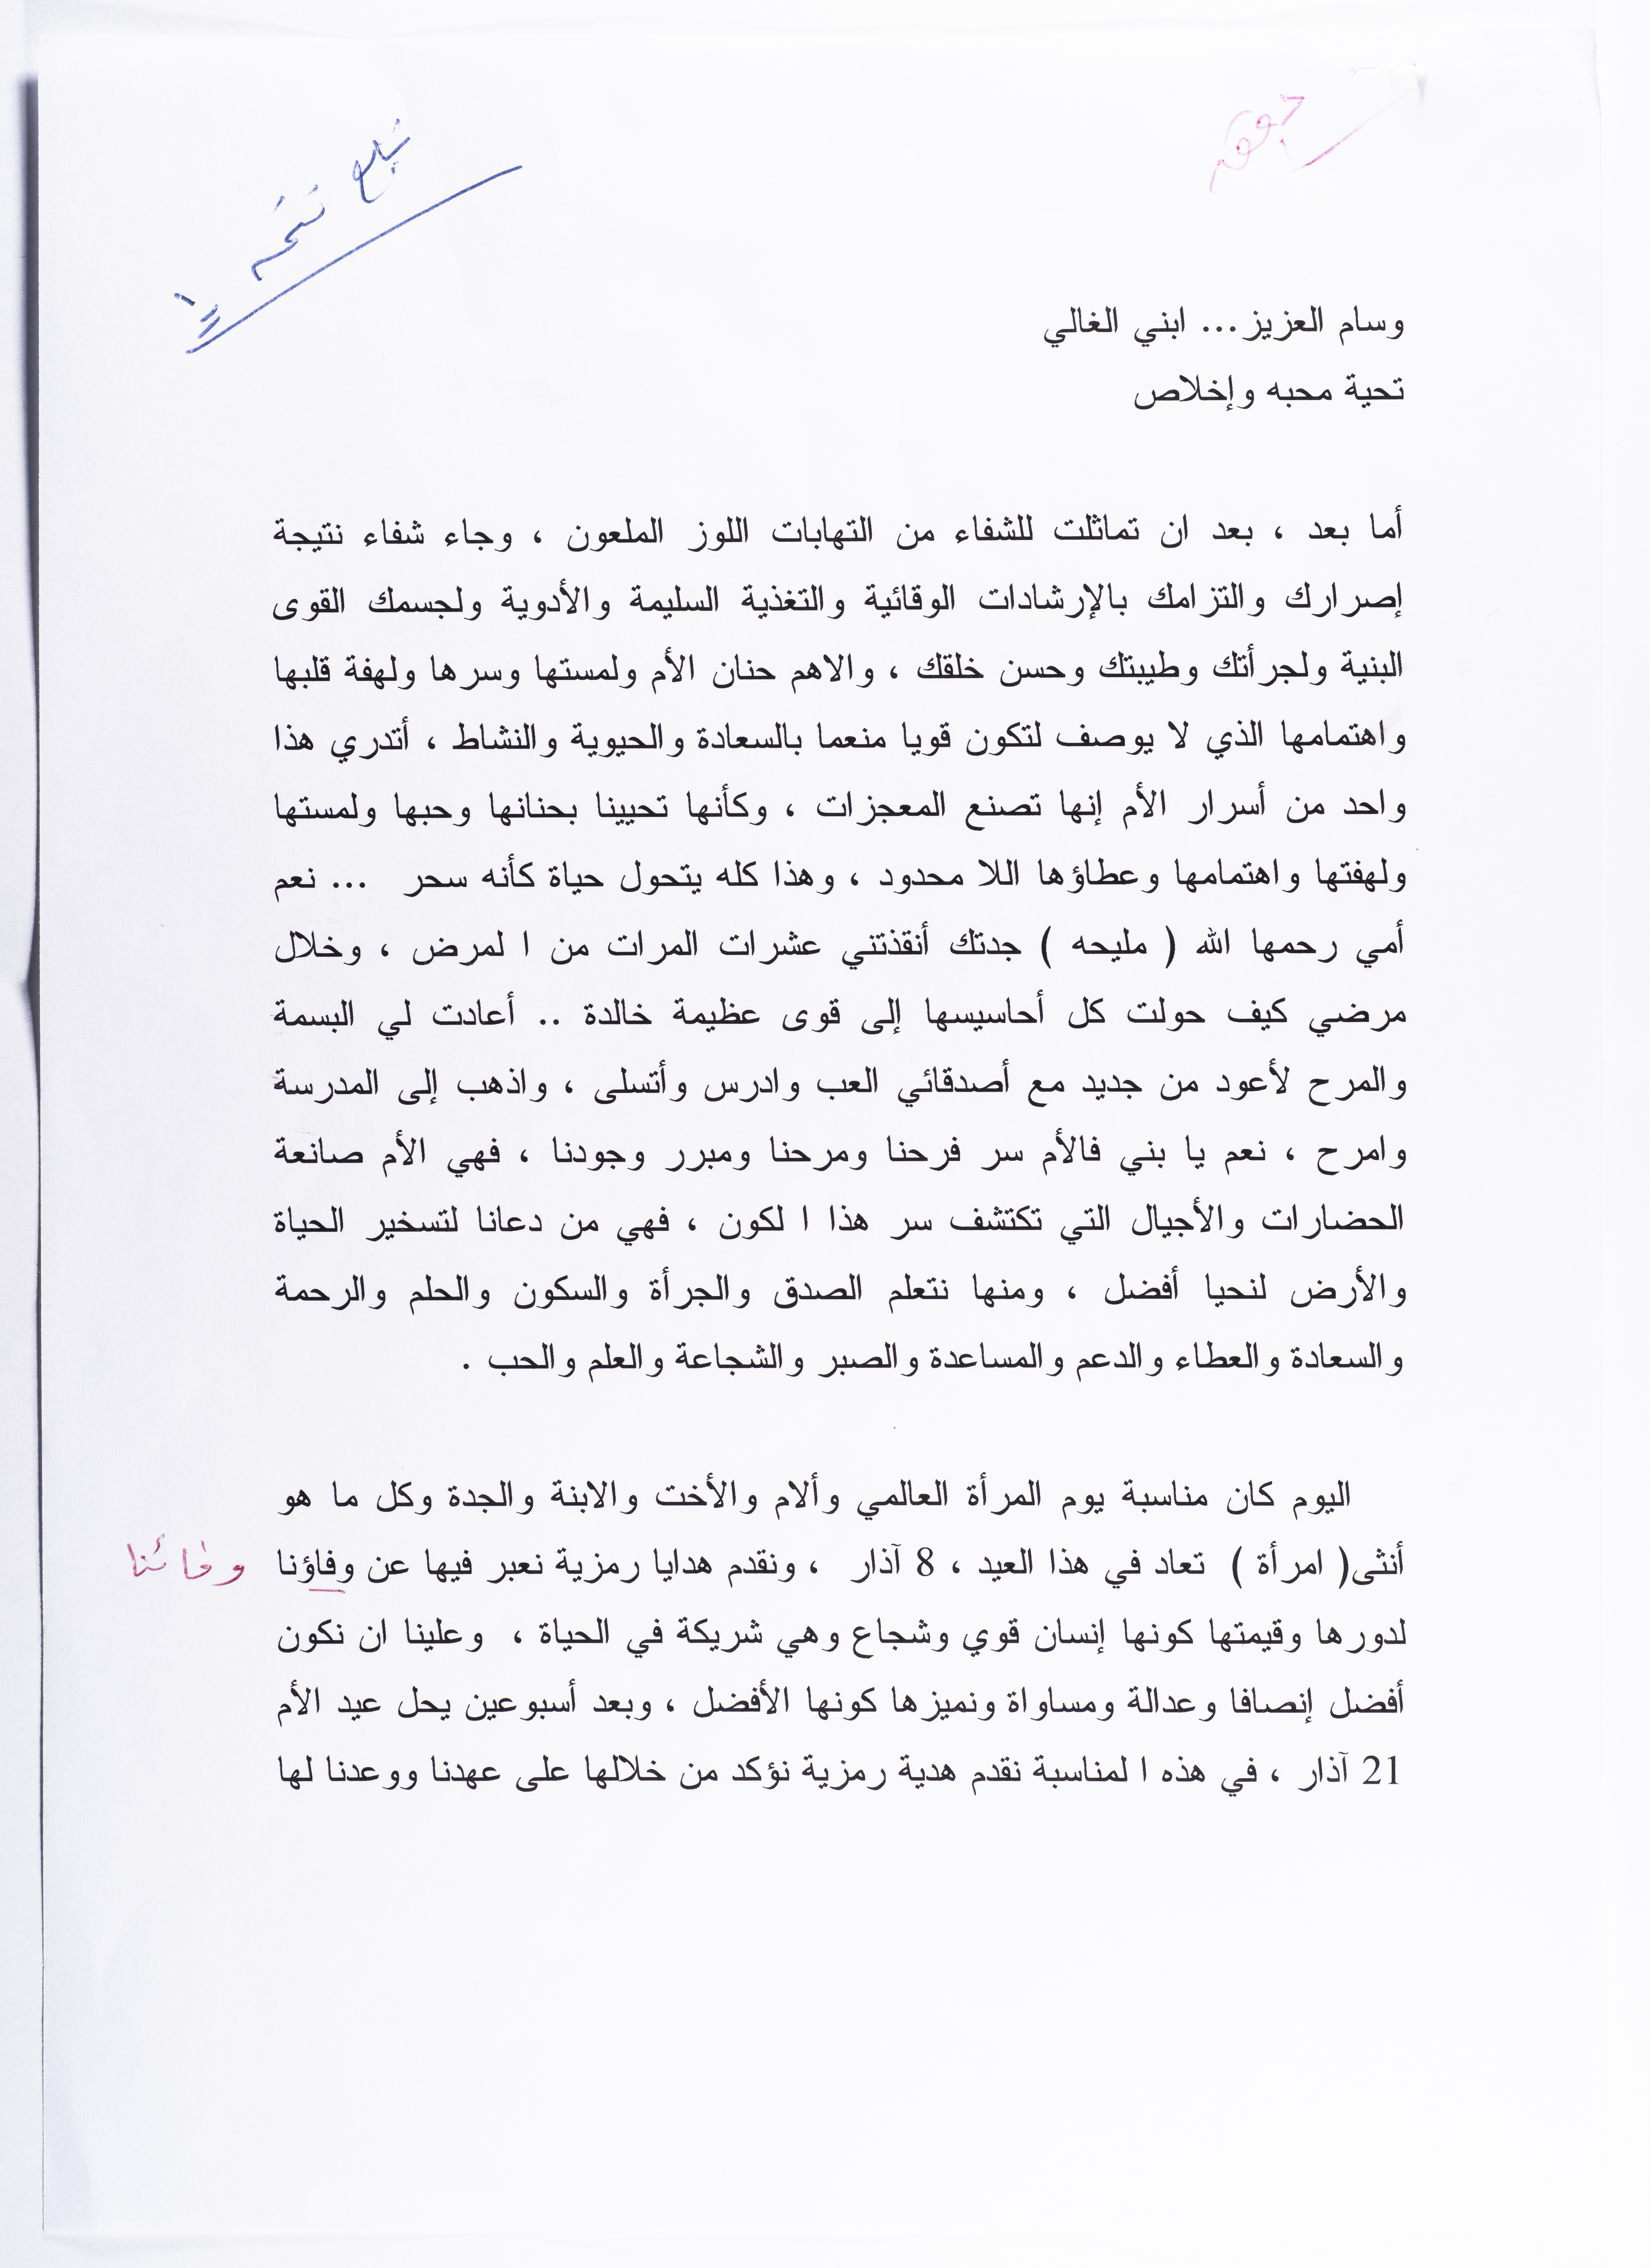 وسام العزيز... ابني الغالي
تحية محبه وإخلاص
أما بعد ، بعد ان تماثلت للشفاء من التهابات اللوز الملعون ، وجاء شفاء نتيجة
إصرارك والتزامك بالإرشادات الوقائية والتغذية السليمة والأدوية ولجسمك القوى
البنية ولجرأتك وطيبتك وحسن خلقك ، والاهم حنان الأم ولمستها وسرها ولهفة قلبها
واهتمامها الذي لا يوصف لتكون قويا منعما بالسعادة والحيوية والنشاط ، أتدري هذا
واحد من أسرار الأم إنها تصنع المعجزات ، وكأنها تحيينا بحنانها وحبها ولمستها
ولهفتها واهتمامها وعطاؤها اللا محدود ، وهذا كله يتحول حياة كأنه سحر ... نعم
أمي رحمها الله ( مليحه ) جدتك أنقذتني عشرات المرات من ا لمرض ، وخلال
مرضي كيف حولت كل أحاسيسها إلى قوى عظيمة خالدة .. أعادت لي البسمة
والمرح لأعود من جديد مع أصدقائي العب وادرس وأتسلى ، واذهب إلى المدرسة
وامرح ، نعم يا بني فالأم سر فرحنا ومرحنا ومبرر وجودنا ، فهي الأم صانعة
الحضارات والأجيال التي تكتشف سر هذا ا لكون ، فهي من دعانا لتسخير الحياة
والأرض لنحيا أفضل ، ومنها نتعلم الصدق والجرأة والسكون والحلم والرحمة
والسعادة والعطاء والدعم والمساعدة والصبر والشجاعة والعلم والحب .
اليوم كان مناسبة يوم المرأة العالمي وألام والأخت والابنة والجدة وكل ما هو
أنثى( امرأة ) تعاد في هذا العيد ، 8 آذار ، ونقدم هدايا رمزية نعبر فيها عن وفاؤنا وفائنا
لدورها وقيمتها كونها إنسان قوي وشجاع وهي شريكة في الحياة ، وعلينا ان نكون
أفضل إنصافا وعدالة ومساواة ونميزها كونها الأفضل ، وبعد أسبوعين يحل عيد الأم
21 آذار ، في هذه ا لمناسبة نقدم هدية رمزية نؤكد من خلالها على عهدنا ووعدنا لها